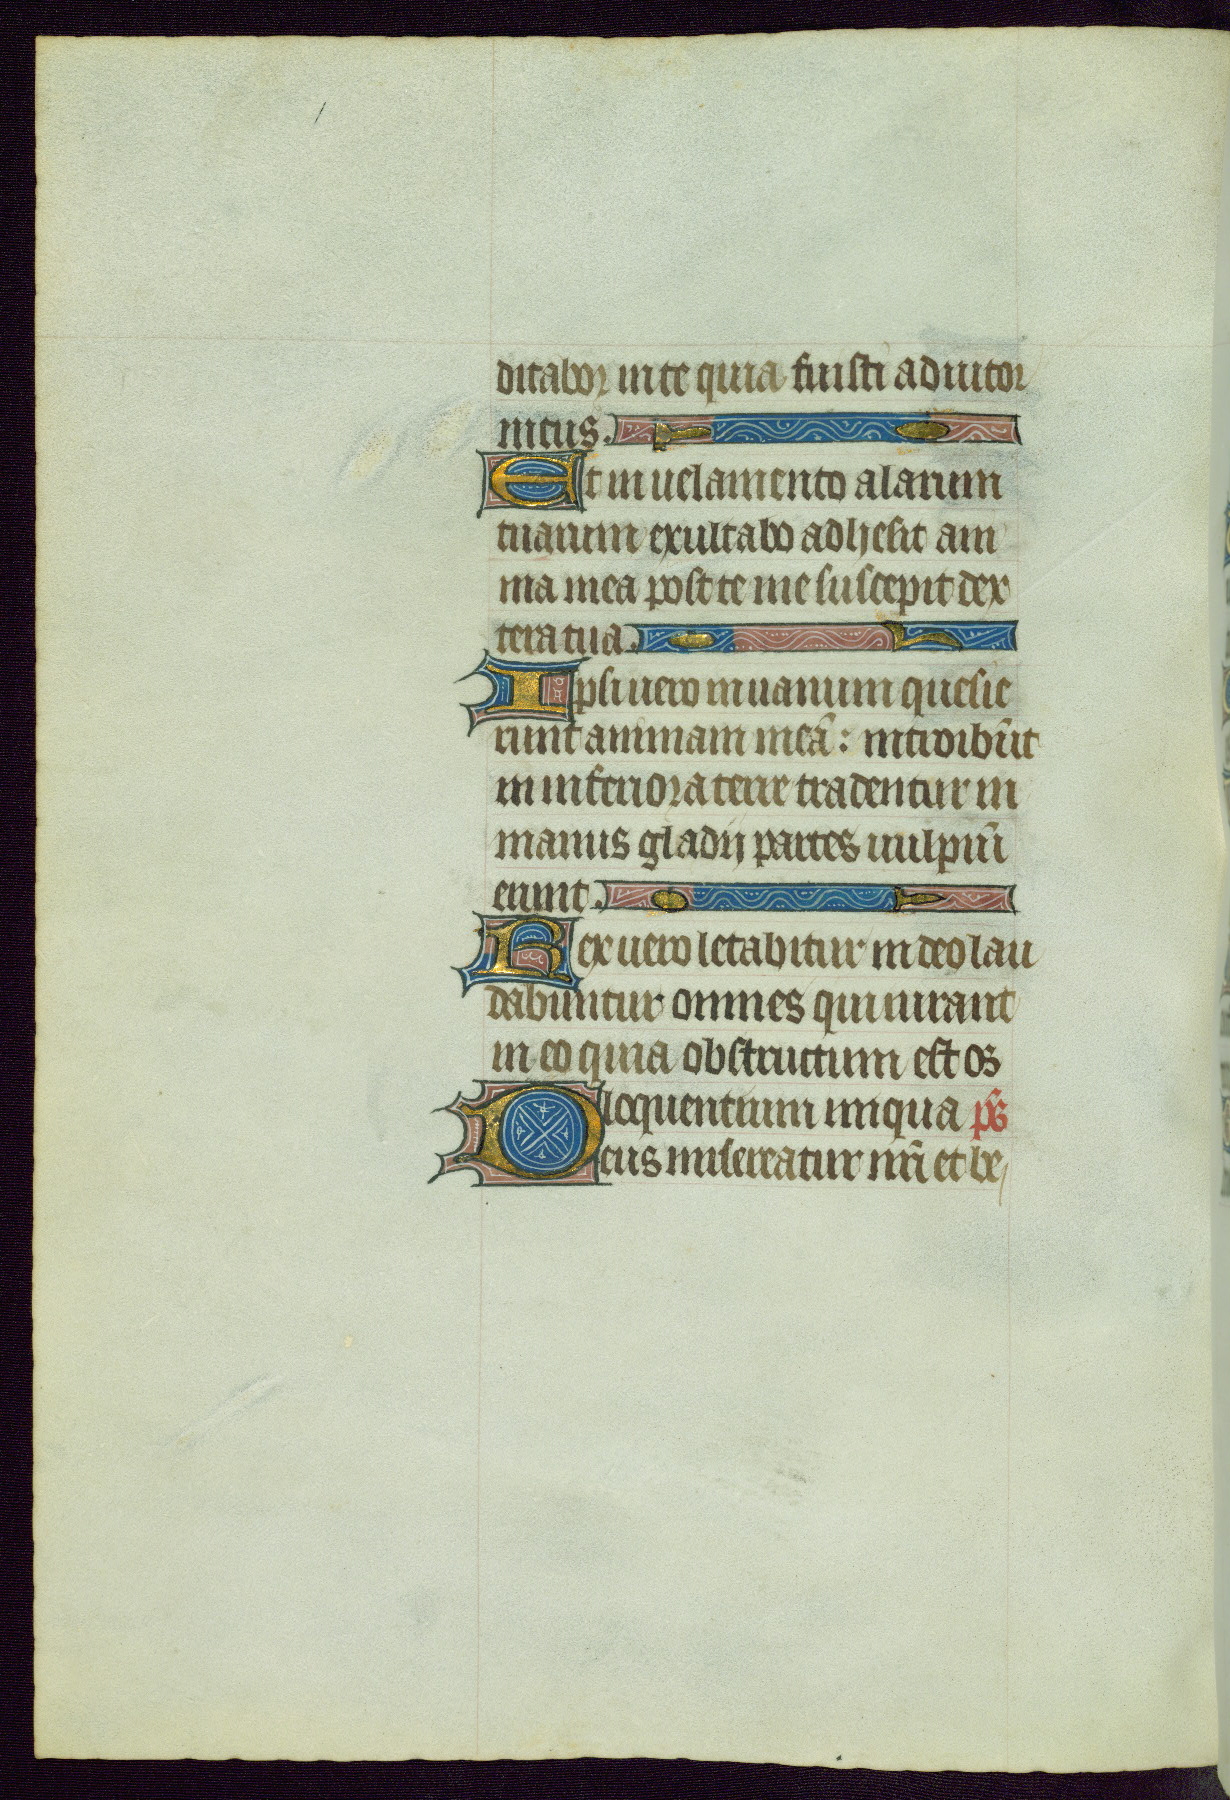 ditabor in te quia fuisti adiutor
meus.
Et in uelamento alarum
tuarum exultabo adhesit ani
ma mea post te me suscepit dex
tera tua.
Ipsi uero in uanum quesie
runt animam meā: introibūt
in inferiora terre tradentur in
manus gladij partes uulpiū
erunt.
Rex uero letabitur in deo lau
dabuntur omnes qui iurant
in eo quia obstructum est os
loquentium iniqua p̄s
Deus misereatur nr̄i et be